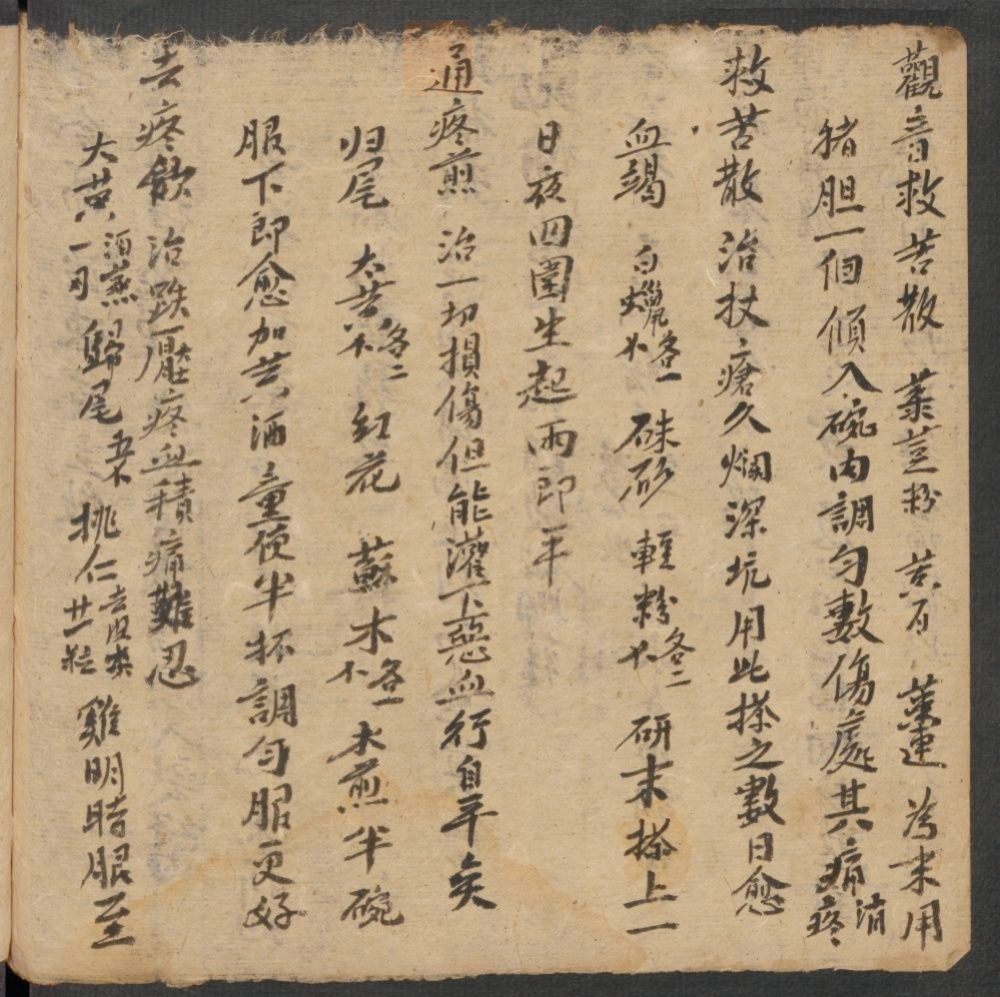 觀音救苦散 菉荳粉 黄百 黄連 為末用
猪胆一個傾入碗內調勻敷傷處其痛消疼
救苦散 治杖瘡久爛深坑用此搽之數日愈
血竭 白蠟 各一 硃砂 輕粉 各二 研末搽上一
日夜四圍生起兩即平
通疼煎 治一切損傷但能灌下惡血行自平矣
归尾 大黄 各二 紅花 蘇木 各一 水煎半碗
服下即愈加黄酒童便半杯調勻服更好
去疼飲 治跌壓疼血積痛難忍
大黄 酒蒸 一刄 歸尾 桃仁 去皮尖 廿一粒 雞明時服至